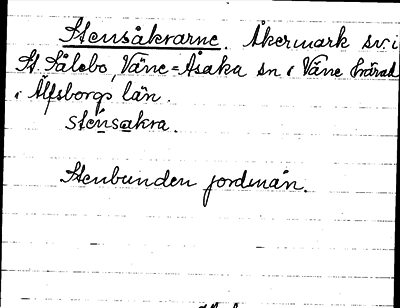 Stensåkrarne. Åkermark sv. i
St. Sålebo, Väne-Åsaka sn i Väne härad
i Älfsborgs län.
stensakra.
Stenbunden jordmån.